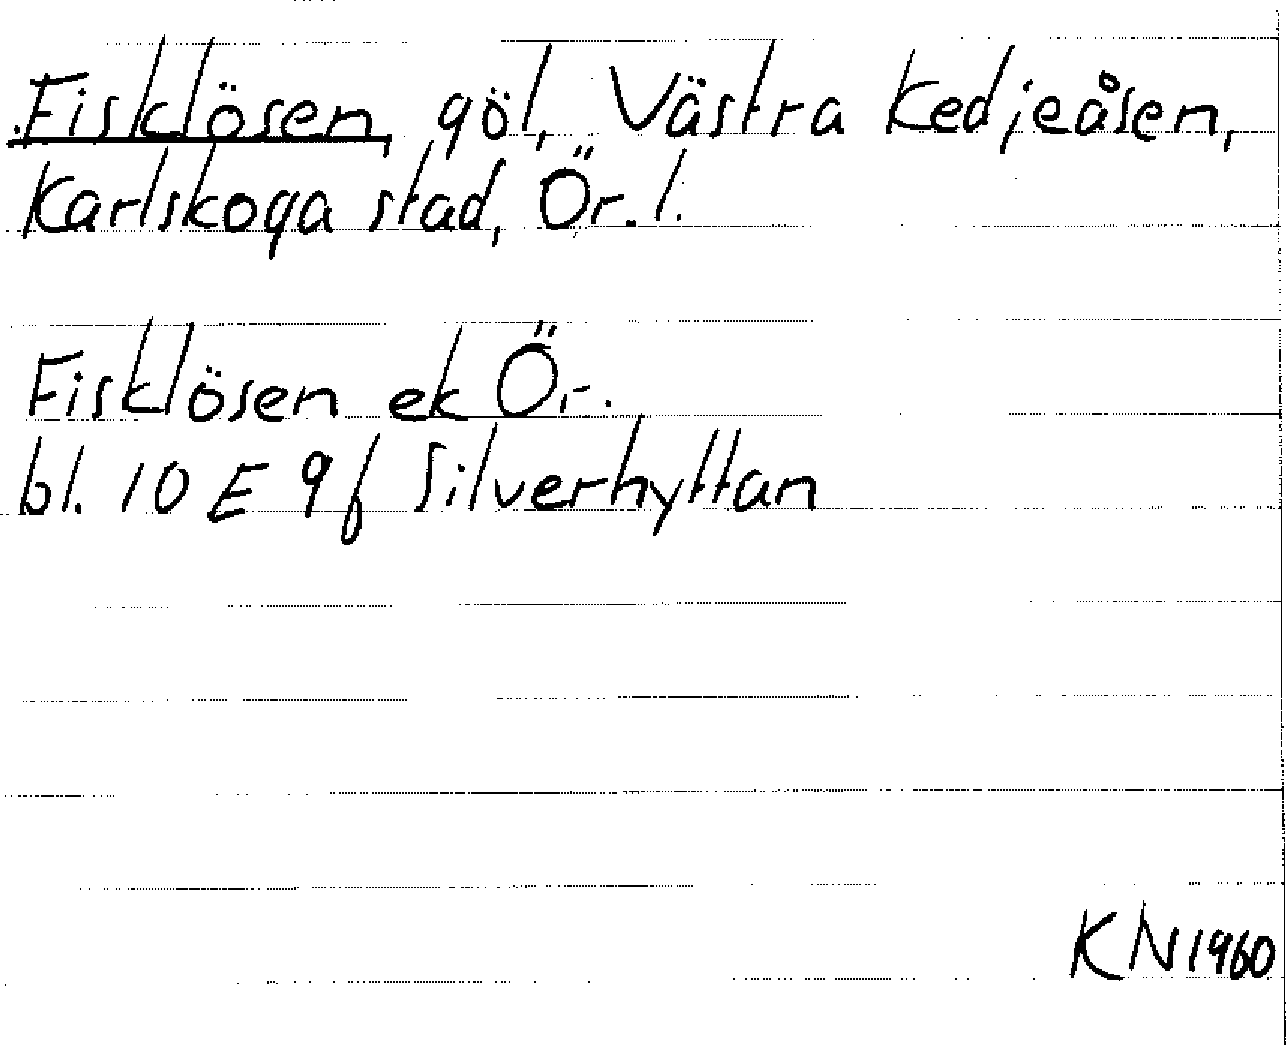 Fisklösen, göl, Västra Kedjeåsen,
Karlskoga stad, Ör. l.
Fisklösen ek Ör.
bl. 10 E 9 f Silverhyttan
KN 1960